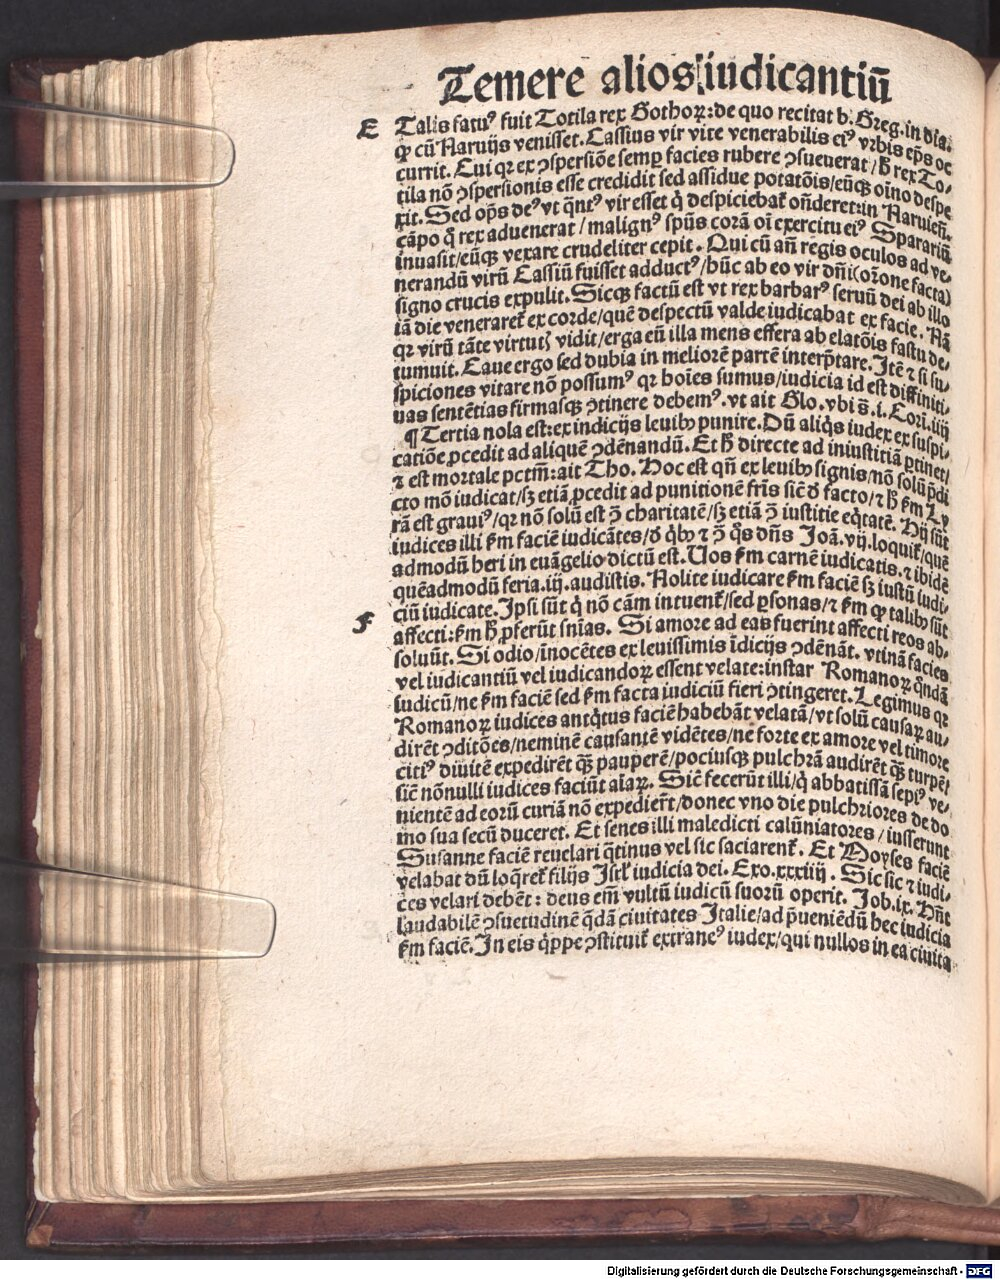 Temere alios iudicantiū
E Talis fatuꝰ fuit Totila rex Gothoꝝ: de quo recitat b. Greg. in dia.
ꝙ cū Naruijs venisset. Cassius vir vite venerabilis eiꝰ vrbis ep̄s oc
currit. Cui qꝛ ex ↄspersiōe semꝑ facies rubere ↄsueuerat / h̄ rex To-
tila nō ↄspersionis esse credidit sed assidue potatōis / eūꝗꝫ oīno despe
xit. Sed op̄s deꝰ vt q̄ntꝰ vir esset q̇ despiciebat᷑ oñderet: in Naruieñ.
cāpo q̇ rex aduenerat / malignꝰ sp̄us corā oī exercitu eiꝰ Spatariū
inuasit / eūꝗꝫ vexare crudeliter cepit. Qui cū añ regis oculos ad ve-
nerandū virū Cassiū fuisset adductꝰ / hūc ab eo vir dñi (or̄one facta)
signo crucis expulit. Sicꝗꝫ factū est vt rex barbarꝰ seruū dei ab illo
iā die veneraret᷑ ex corde / quē despectū valde iudicabat ex facie. Nā
qꝛ virū tāte virtutꝭ vidit / erga eū illa mens effera ab elatōis fastu de-
tumuit. Caue ergo sed dubia in meliorē partē interp̄tare. Itē ⁊ si su-
spiciones vitare nō possumꝰ qꝛ hoīes sumus / iudicia id est diffiniti-
uas sentētias firmasꝗꝫ ↄtinere debemꝰ. vt ait Glo. vbi s̄. i. Cori. iiij
¶ Tertia nola est: ex indicijs leuibꝰ punire. Dū aliq̇s iudex ex suspi-
catiōe ꝓcedit ad aliquē ↄdēnandū. Et h̄ directe ad iniustitiā ꝑtinet /
⁊ est mortale pctm̄: ait Tho. Hoc est qñ ex leuibꝰ signis / nō solū p̄di
cto mō iudicat / sꝫ etiā ꝓcedit ad punitionē fr̄is sic̄ d̄ facto / ⁊ h̄ ẜm Ly
rā est grauiꝰ / qꝛ nō solū est ↄ̄ charitatē / sꝫ etiā ↄ̄ iustitie eq̇tatē. Hij sūt
iudices illi ẜm faciē iudicātes / d̄ q̇bꝰ ⁊ ↄ̄ q̇s dñs Joā. vij. loquit᷑ / quē
admodū heri in euāgelio dictū est. Uos ẜm carnē iudicatis. ⁊ ibidē
quēadmodū feria. iij. audistis. Nolite iudicare ẜm faciē sꝫ iustū iudi-
ciū iudicate. Ipsi sūt q̇ nō cām intuent᷑ / sed ꝑsonas / ⁊ ẜm ꝙ talibꝰ sūt
F affecti: ẜm h̄ ꝓferūt sn̄ias. Si amore ad eas fuerint affecti reos ab-
soluūt. Si odio / īnocētes ex leuissimis īdicijs ↄdēnāt. vtinā facies
vel iudicantiū vel iudicandoꝝ essent velate: instar Romanoꝝ q̇ndā
iudicū / ne ẜm faciē sed ẜm facta iudiciū fieri ↄtingeret. Legimus qꝛ
Romanoꝝ iudices antq̇tus faciē habebāt velatā / vt solū causaꝝ au-
dirēt ↄditōes / neminē causantē vidētes / ne forte ex amore vel timore
citiꝰ diuitē expedirēt ꝗ̄ꝫ pauperē / pociusꝗꝫ pulchrā audirēt ꝗ̄ꝫ turpē /
sic̄ nōnulli iudices faciūt al̄aꝝ. Sic̄ fecerūt illi / q̇ abbatissā sepiꝰ ve-
nientē ad eorū curiā nō expedier̄t / donec vno die pulchriores de do
mo sua secū duceret. Et senes illi maledicti calūniatores / iusserunt
Susanne faciē reuelari q̄tinus vel sic saciarent᷑. Et Moyses faciē
velabat dū loq̄ret᷑ filijs Isrl̄ iudicia dei. Exo. xxxiiij. Sic sic ⁊ iudi-
ces velari debēt: deus em̄ vultū iudicū suorū operit. Job. ix. Hn̄t
laudabilē ↄsuetudinē q̄dā ciuitates Italie / ad p̄ueniēdū hec iudicia
ẜm faciē. In eis q̇ppe ↄstituit᷑ extraneꝰ iudex / qui nullos in ea ciuita
Digitalisierung gefördert durch die Deutsche Forschungsgemeinschaft - DFG